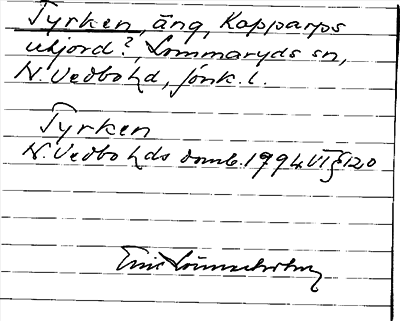 Tyrken, äng, Kopparps
utjord?, Lommaryds sn,
N. Vedbo hd, Jönk. l.
Tyrken
N. Vedbo hds domb. 1794 VI § 120